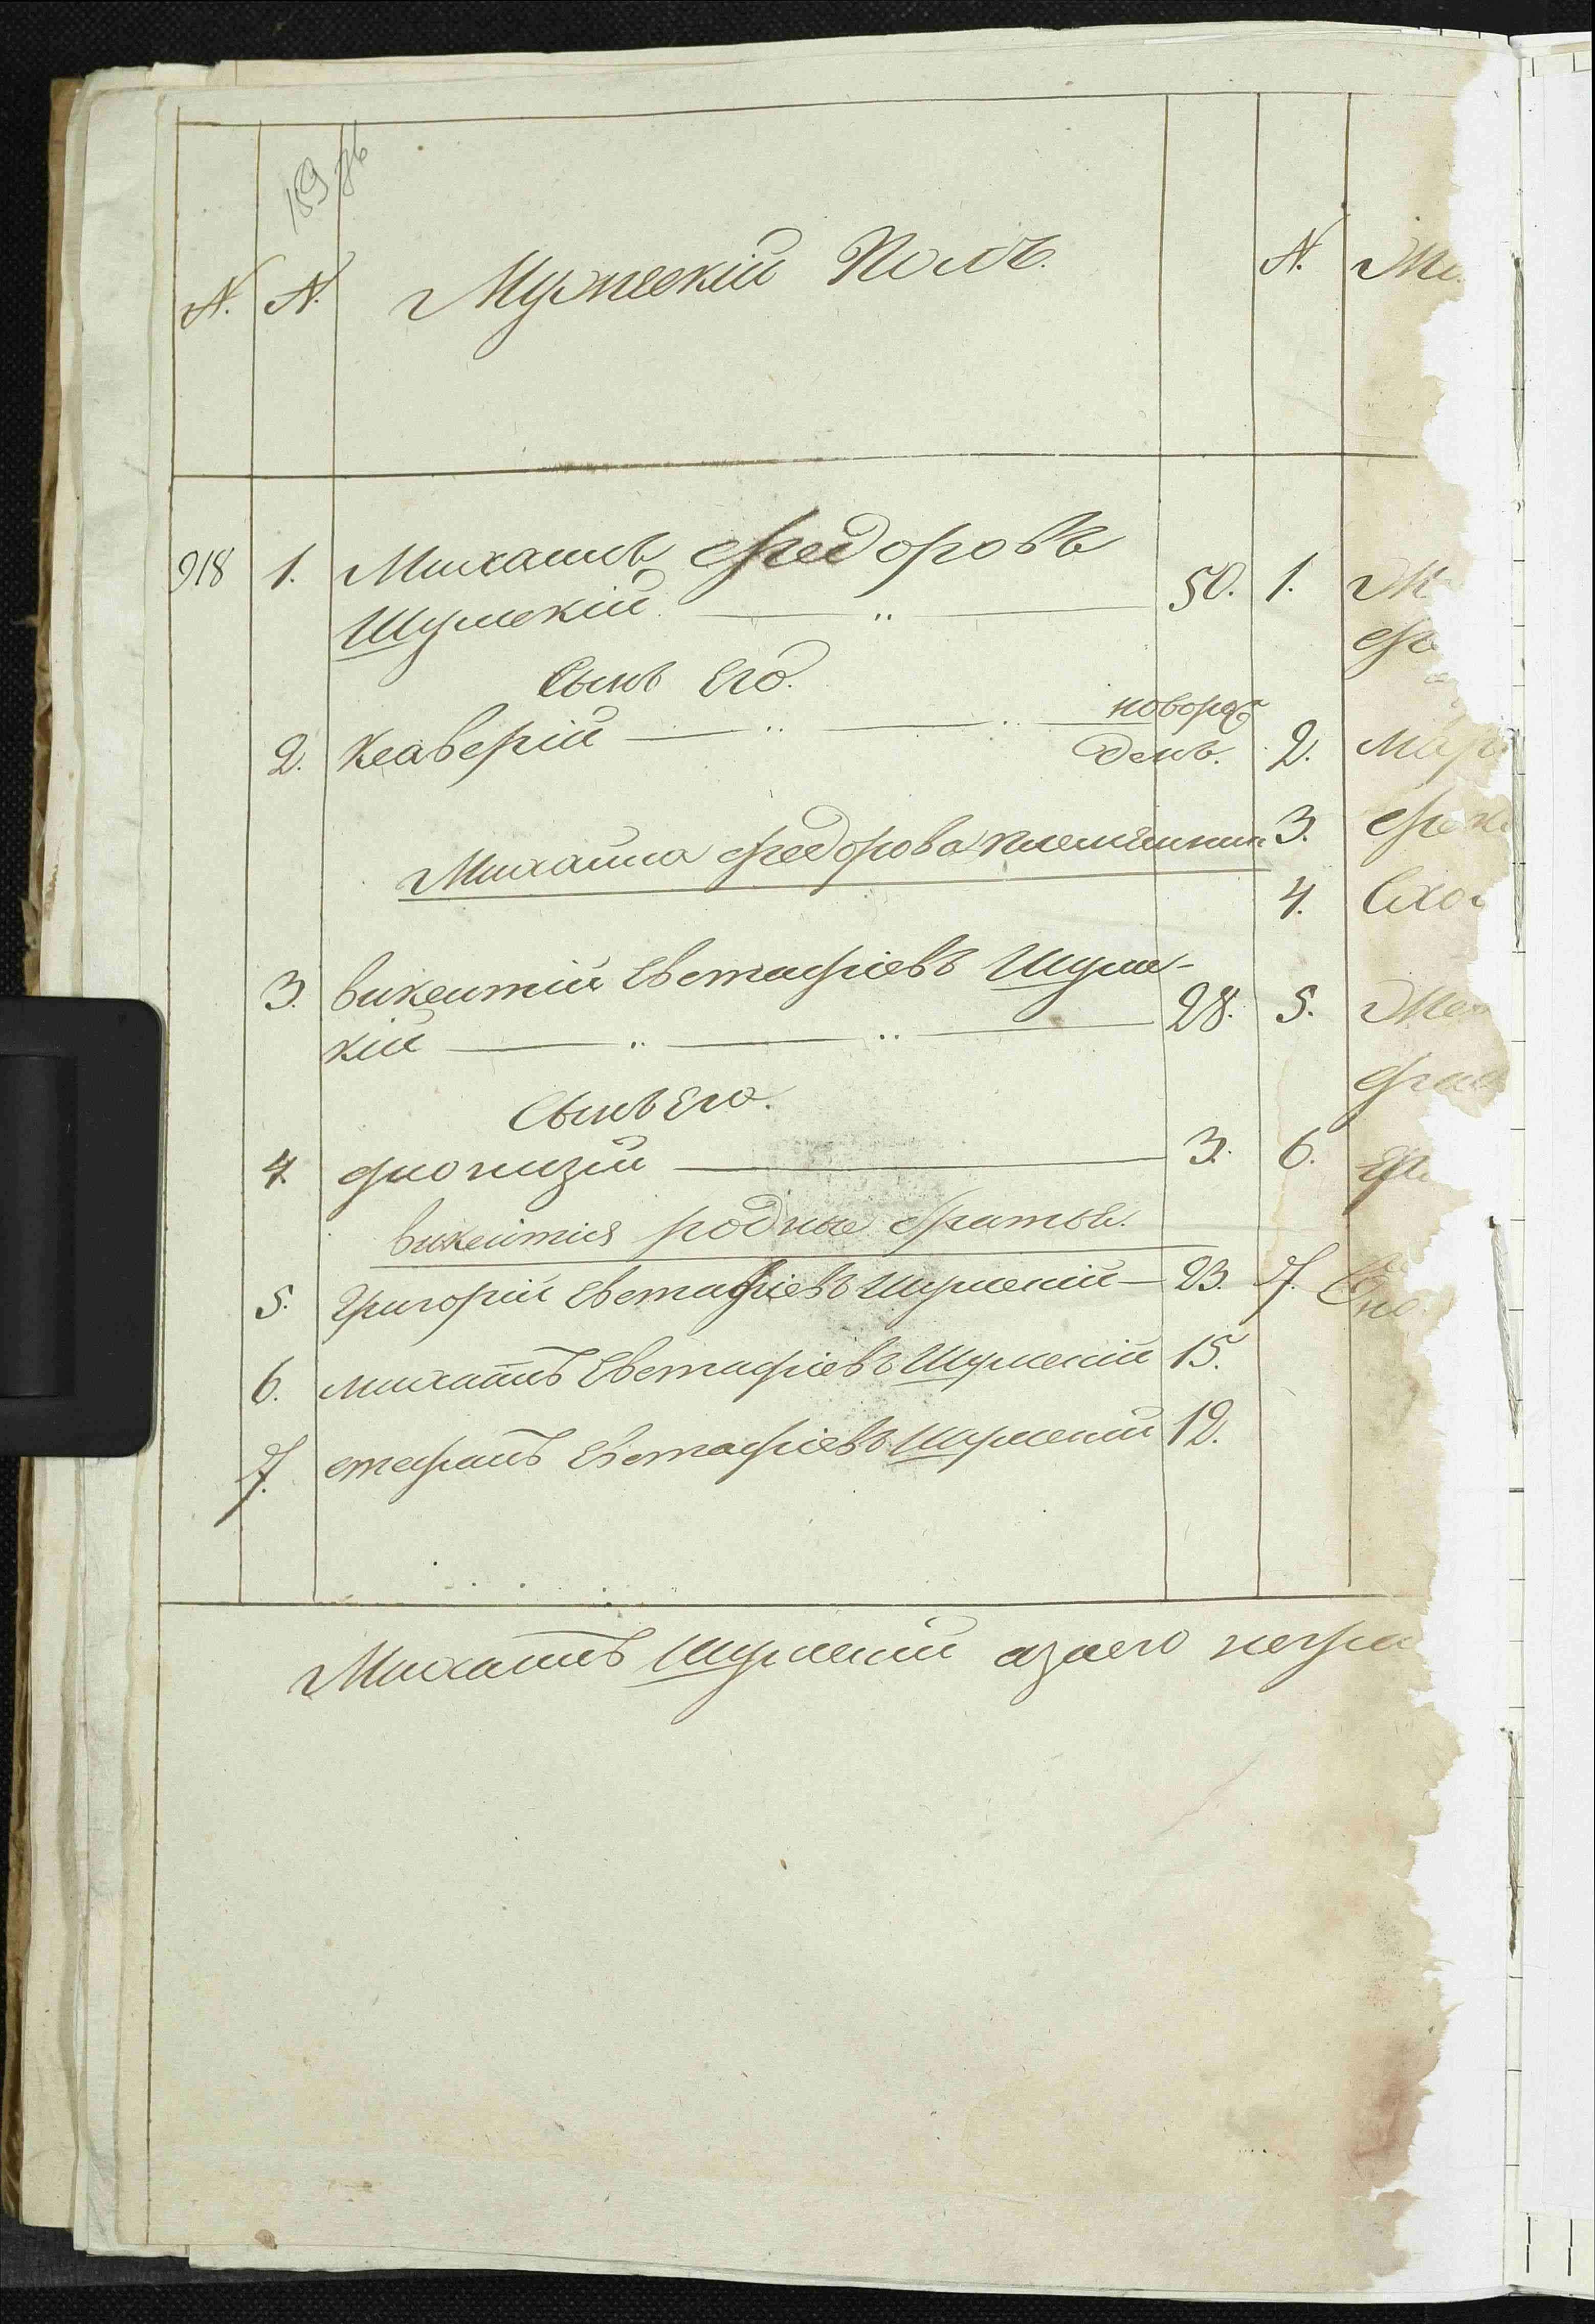 159 об
N. N. Мужескій Полъ. N. Му
918 1. Михаилъ Федоровъ
Шумскій 50. 1. М
Сынъ Его.
2. Ксаверій новорож
денъ. 2. Мар
Михаила Федорова племянник 3.
4.
3. викентій Евстафіевъ Шумс-
кій 28. 5.
Сынъ Его.
4. діонизій 3. 6.
викентія родные братья.
5. Григорій Евстафіевъ Шумскій 23. 7.
6. михаилъ Евстафіевъ Шумскій 15.
7. стефанъ Евстафіевъ Шумскій 12.
Михаилъ Шумскій азаего негра